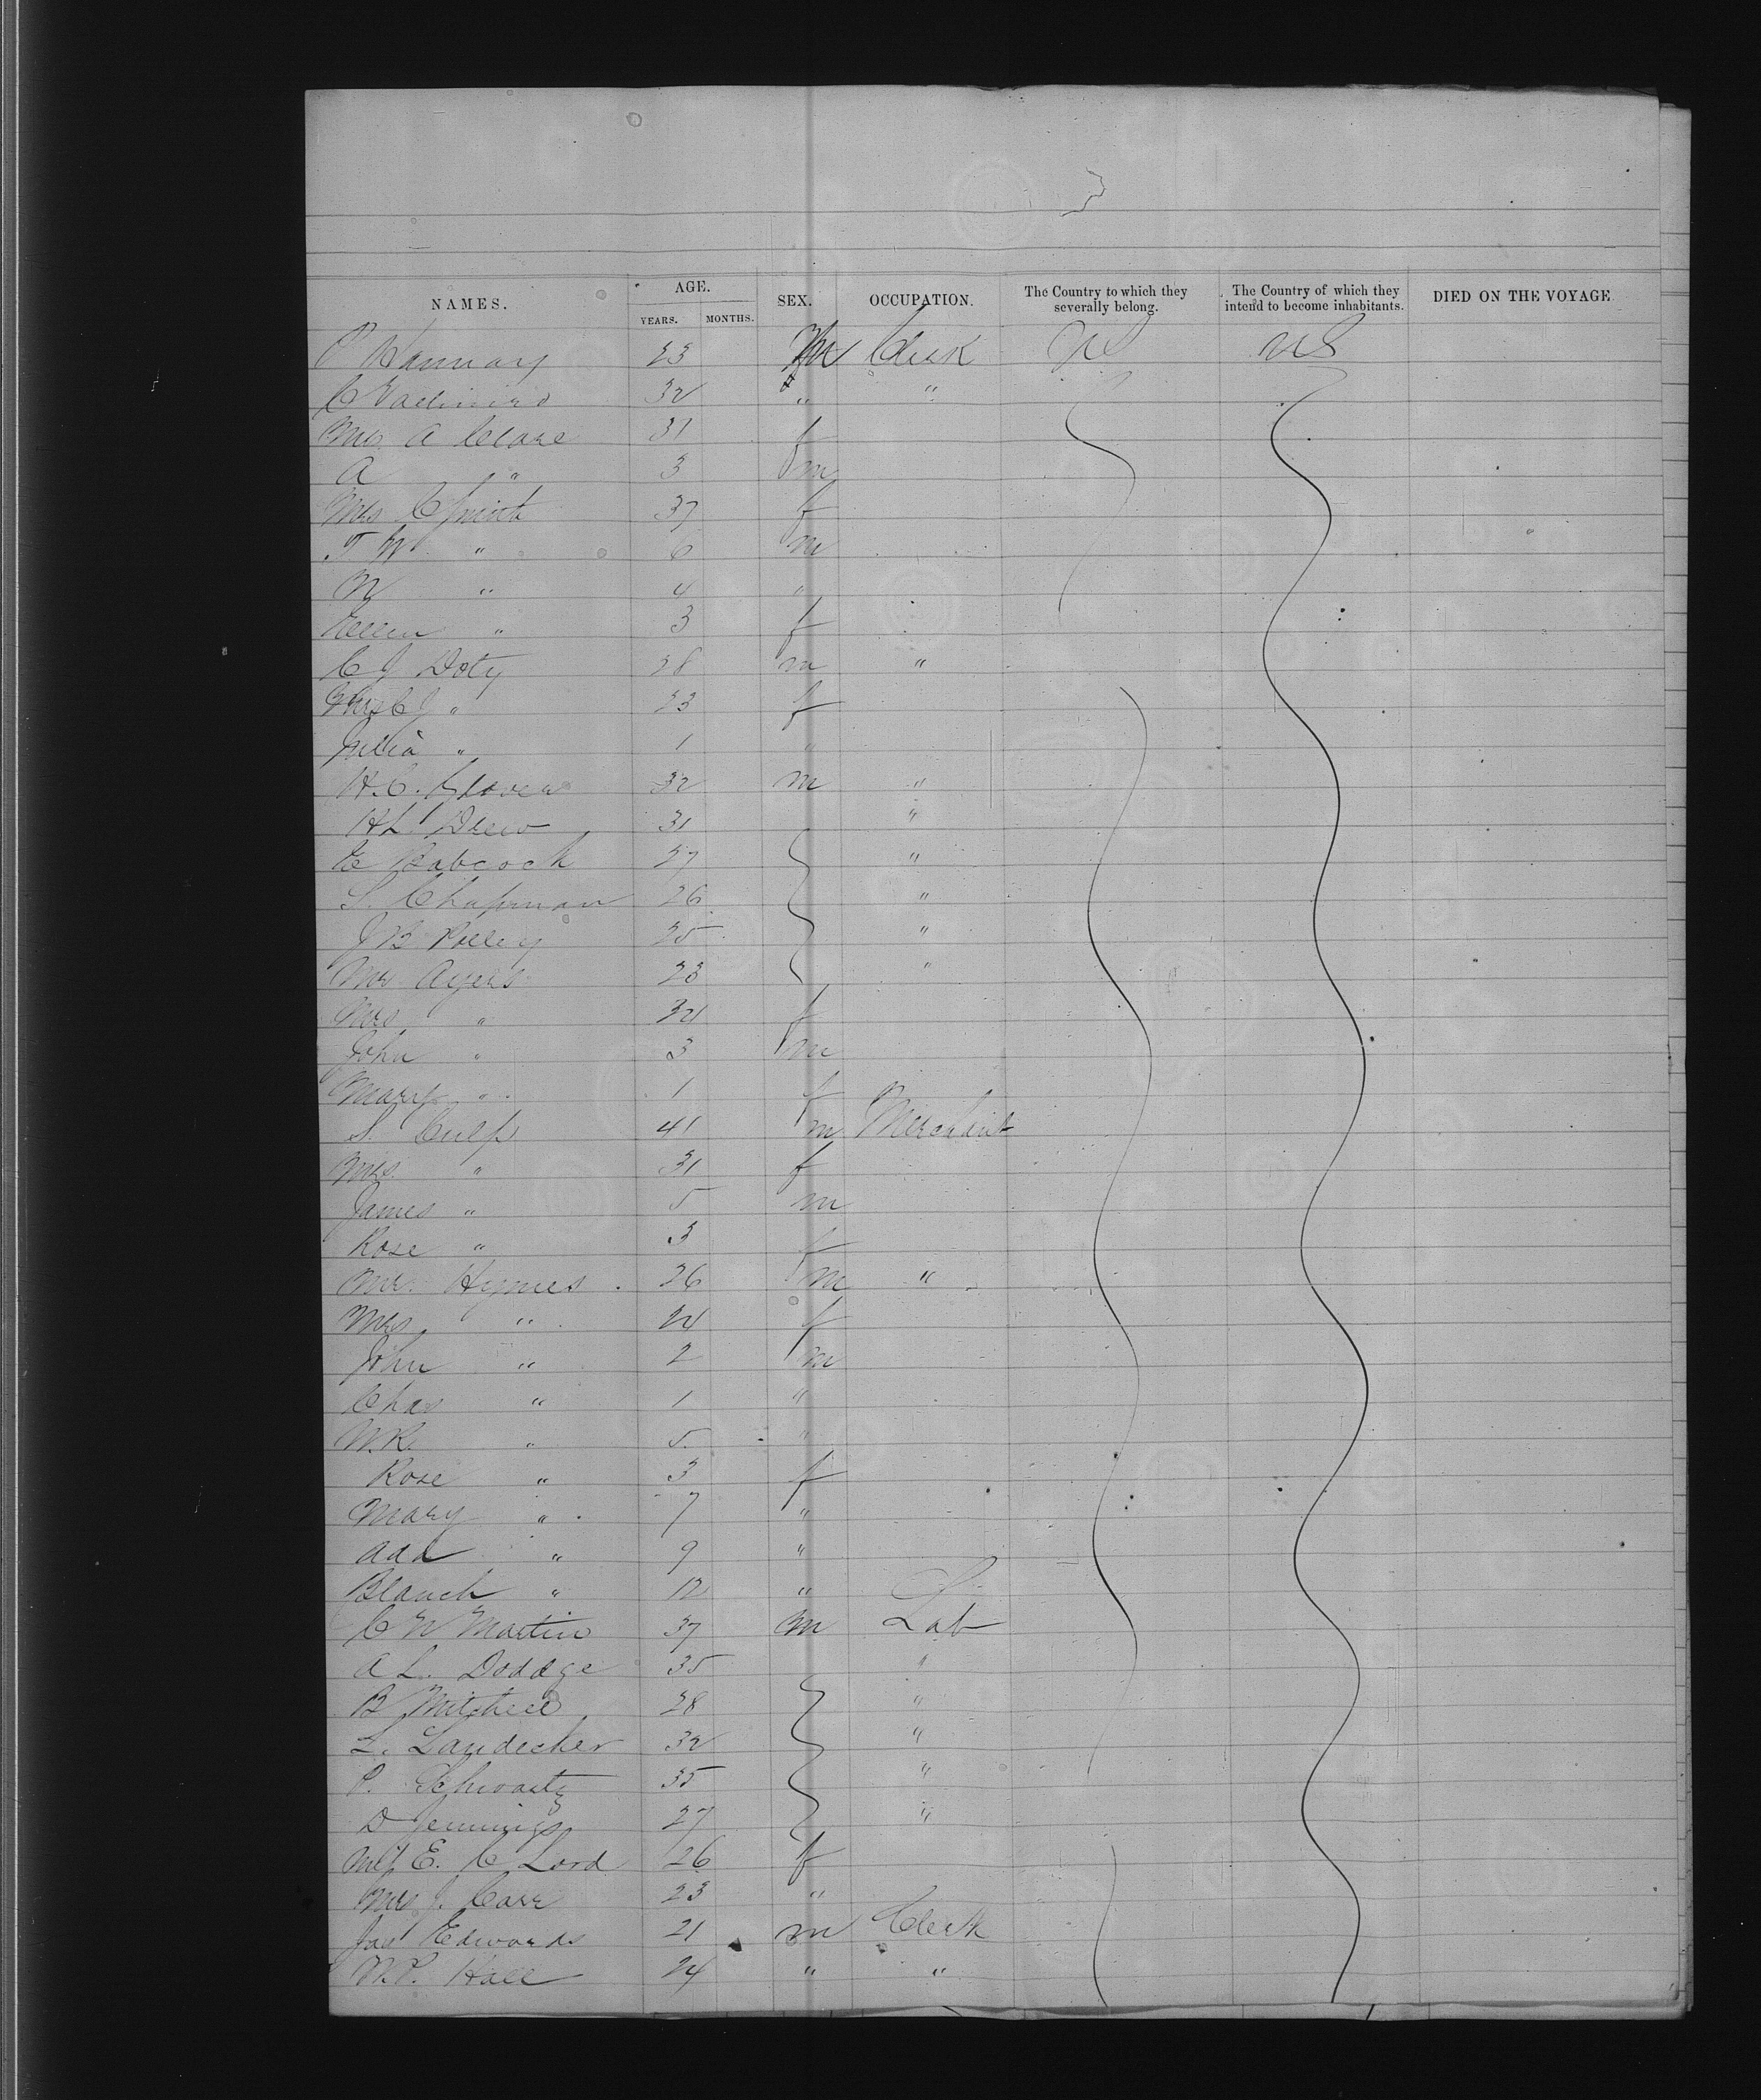 NAMES. AGE. YEARS. MONTHS. SEX. OCCUPATION. The Country to which they severally belong. The Country of which they intend to become inhabitants. DIED ON THE VOYAGE
P Hannary 23 M Clerk US US
C 32 " "
Mrs A Clare 31 f
A " 3 m
Mrs C 37 f
T W " 6 m
W " 4 "
Ellen " 3 f
C J Doty 28 m "
Mrs C J " 23 f
Julia " 1 "
H. C. Glover 32 m "
H L Drew 31 "
E Babcock 27 "
S. Chapman 26 "
J B Polley 25 "
Mr Ayers 23 "
Mrs " 34 f
John " 3 m
Mary " 1 f
S. Culp 41 m Merchant
Mrs. " 31 f
James " 5 m
Rose " 3 f
Mr. Hymes 26 m "
Mrs " 24 f
John " 2 m
Chas " 1 "
W. R. " 5 "
Rose " 3 f
Mary " 7 "
Ada " 9 "
Blanch " 12 "
C W Martin 37 m Lab
A L. Doddge 35 "
B Mitchell 28 "
L. Landecker 32 "
P. Schwartz 35 "
D Jennings 27 "
E. C Lord 26 f
Mrs J. Carr 23 "
Jas Edwards 21 m Clerk
M. P. Hall 24 " "